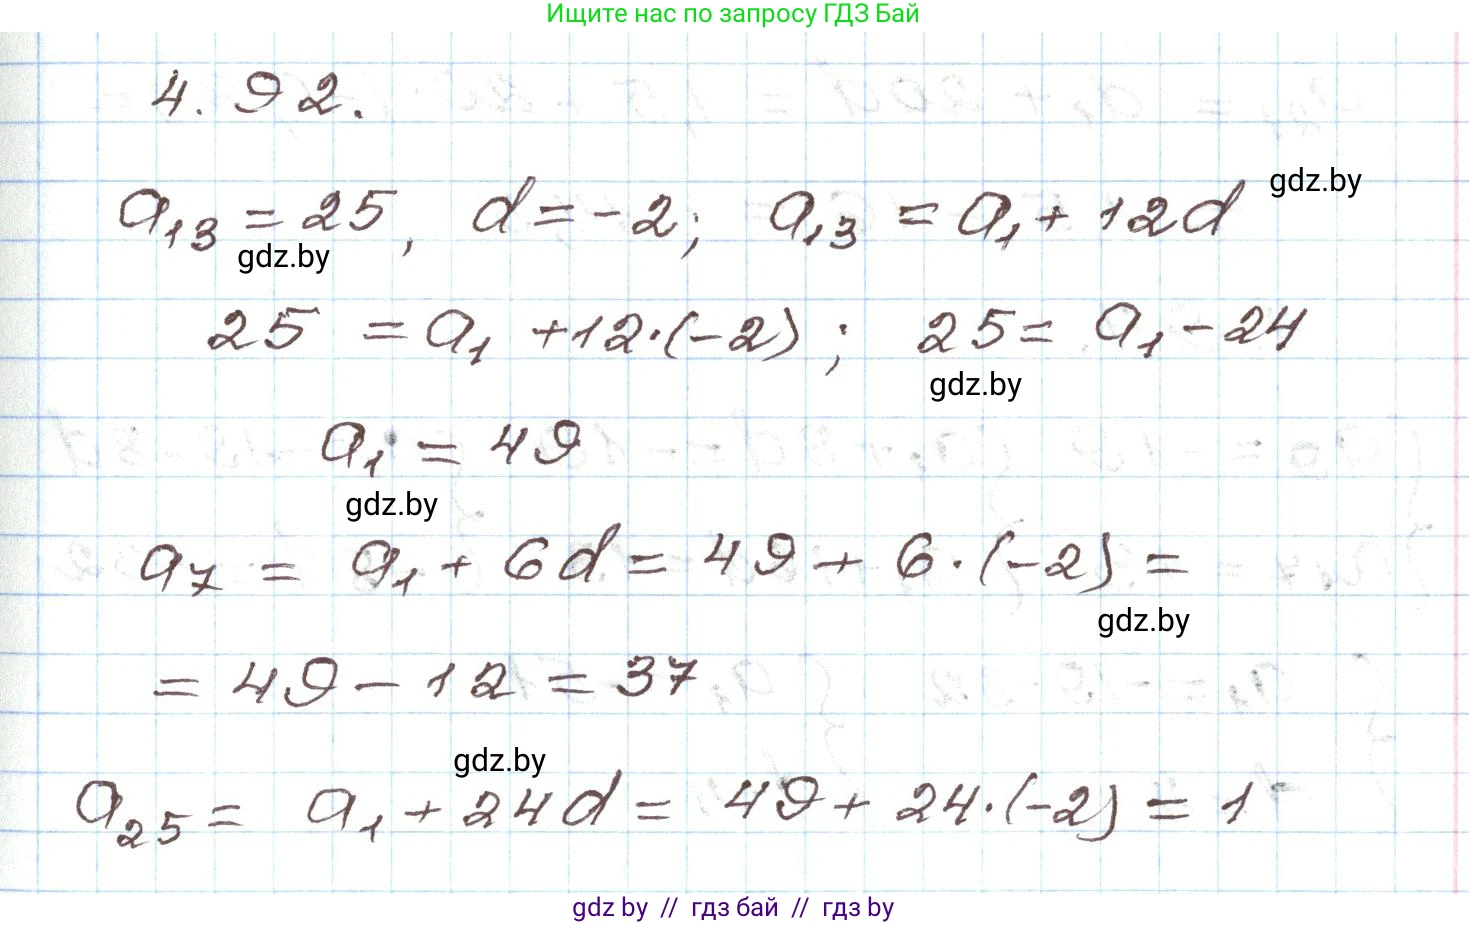 Ищите нас по запросу ГДЗ Бай
4.92.
a₁₃ = 25, d = -2; a₁₃ = a₁ + 12d
gdz.by
gdz.by
25 = a₁ + 12·(-2); 25 = a₁ - 24
gdz.by
a₁ = 49
gdz.by
a₇ = a₁ + 6d = 49 + 6·(-2) =
gdz.by
= 49 - 12 = 37
gdz.by
a₂₅ = a₁ + 24d = 49 + 24·(-2) = 1
gdz by // гдз бай // гдз by